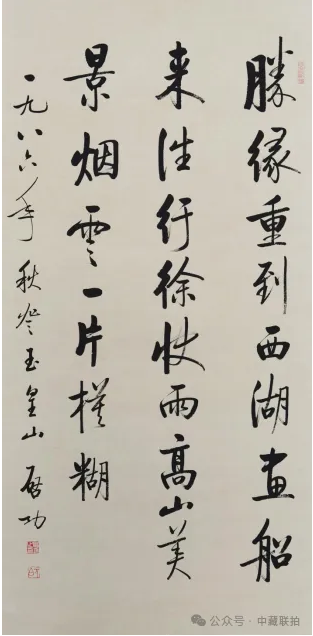 勝緣重到西湖畫船
来往行徐快雨高山美
景烟雲一片模糊
一九八六年秋登玉皇山 啓功
公众号 · 中藏联拍